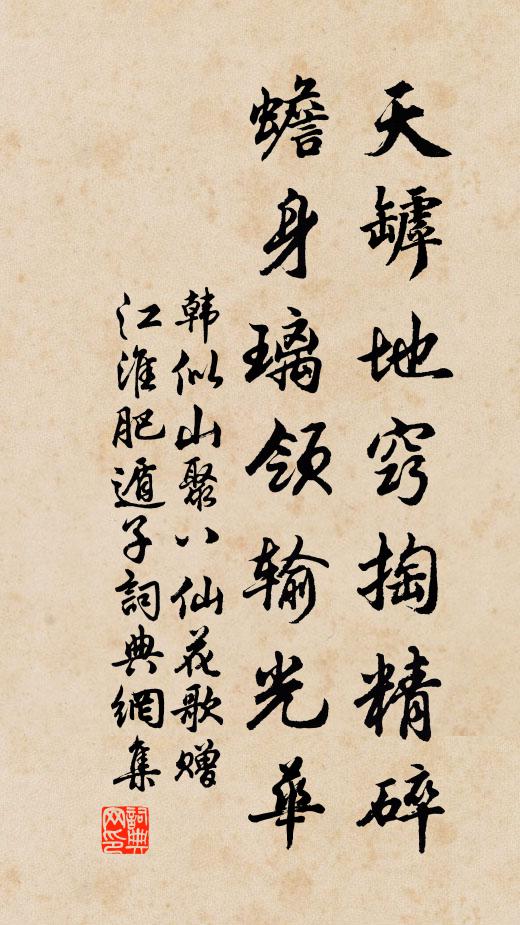 天罅地窍掏精碎
蟾身璃颔输光華
韩似山聚八仙花歌赠
江淮肥遁子詞典網集
詞典网印